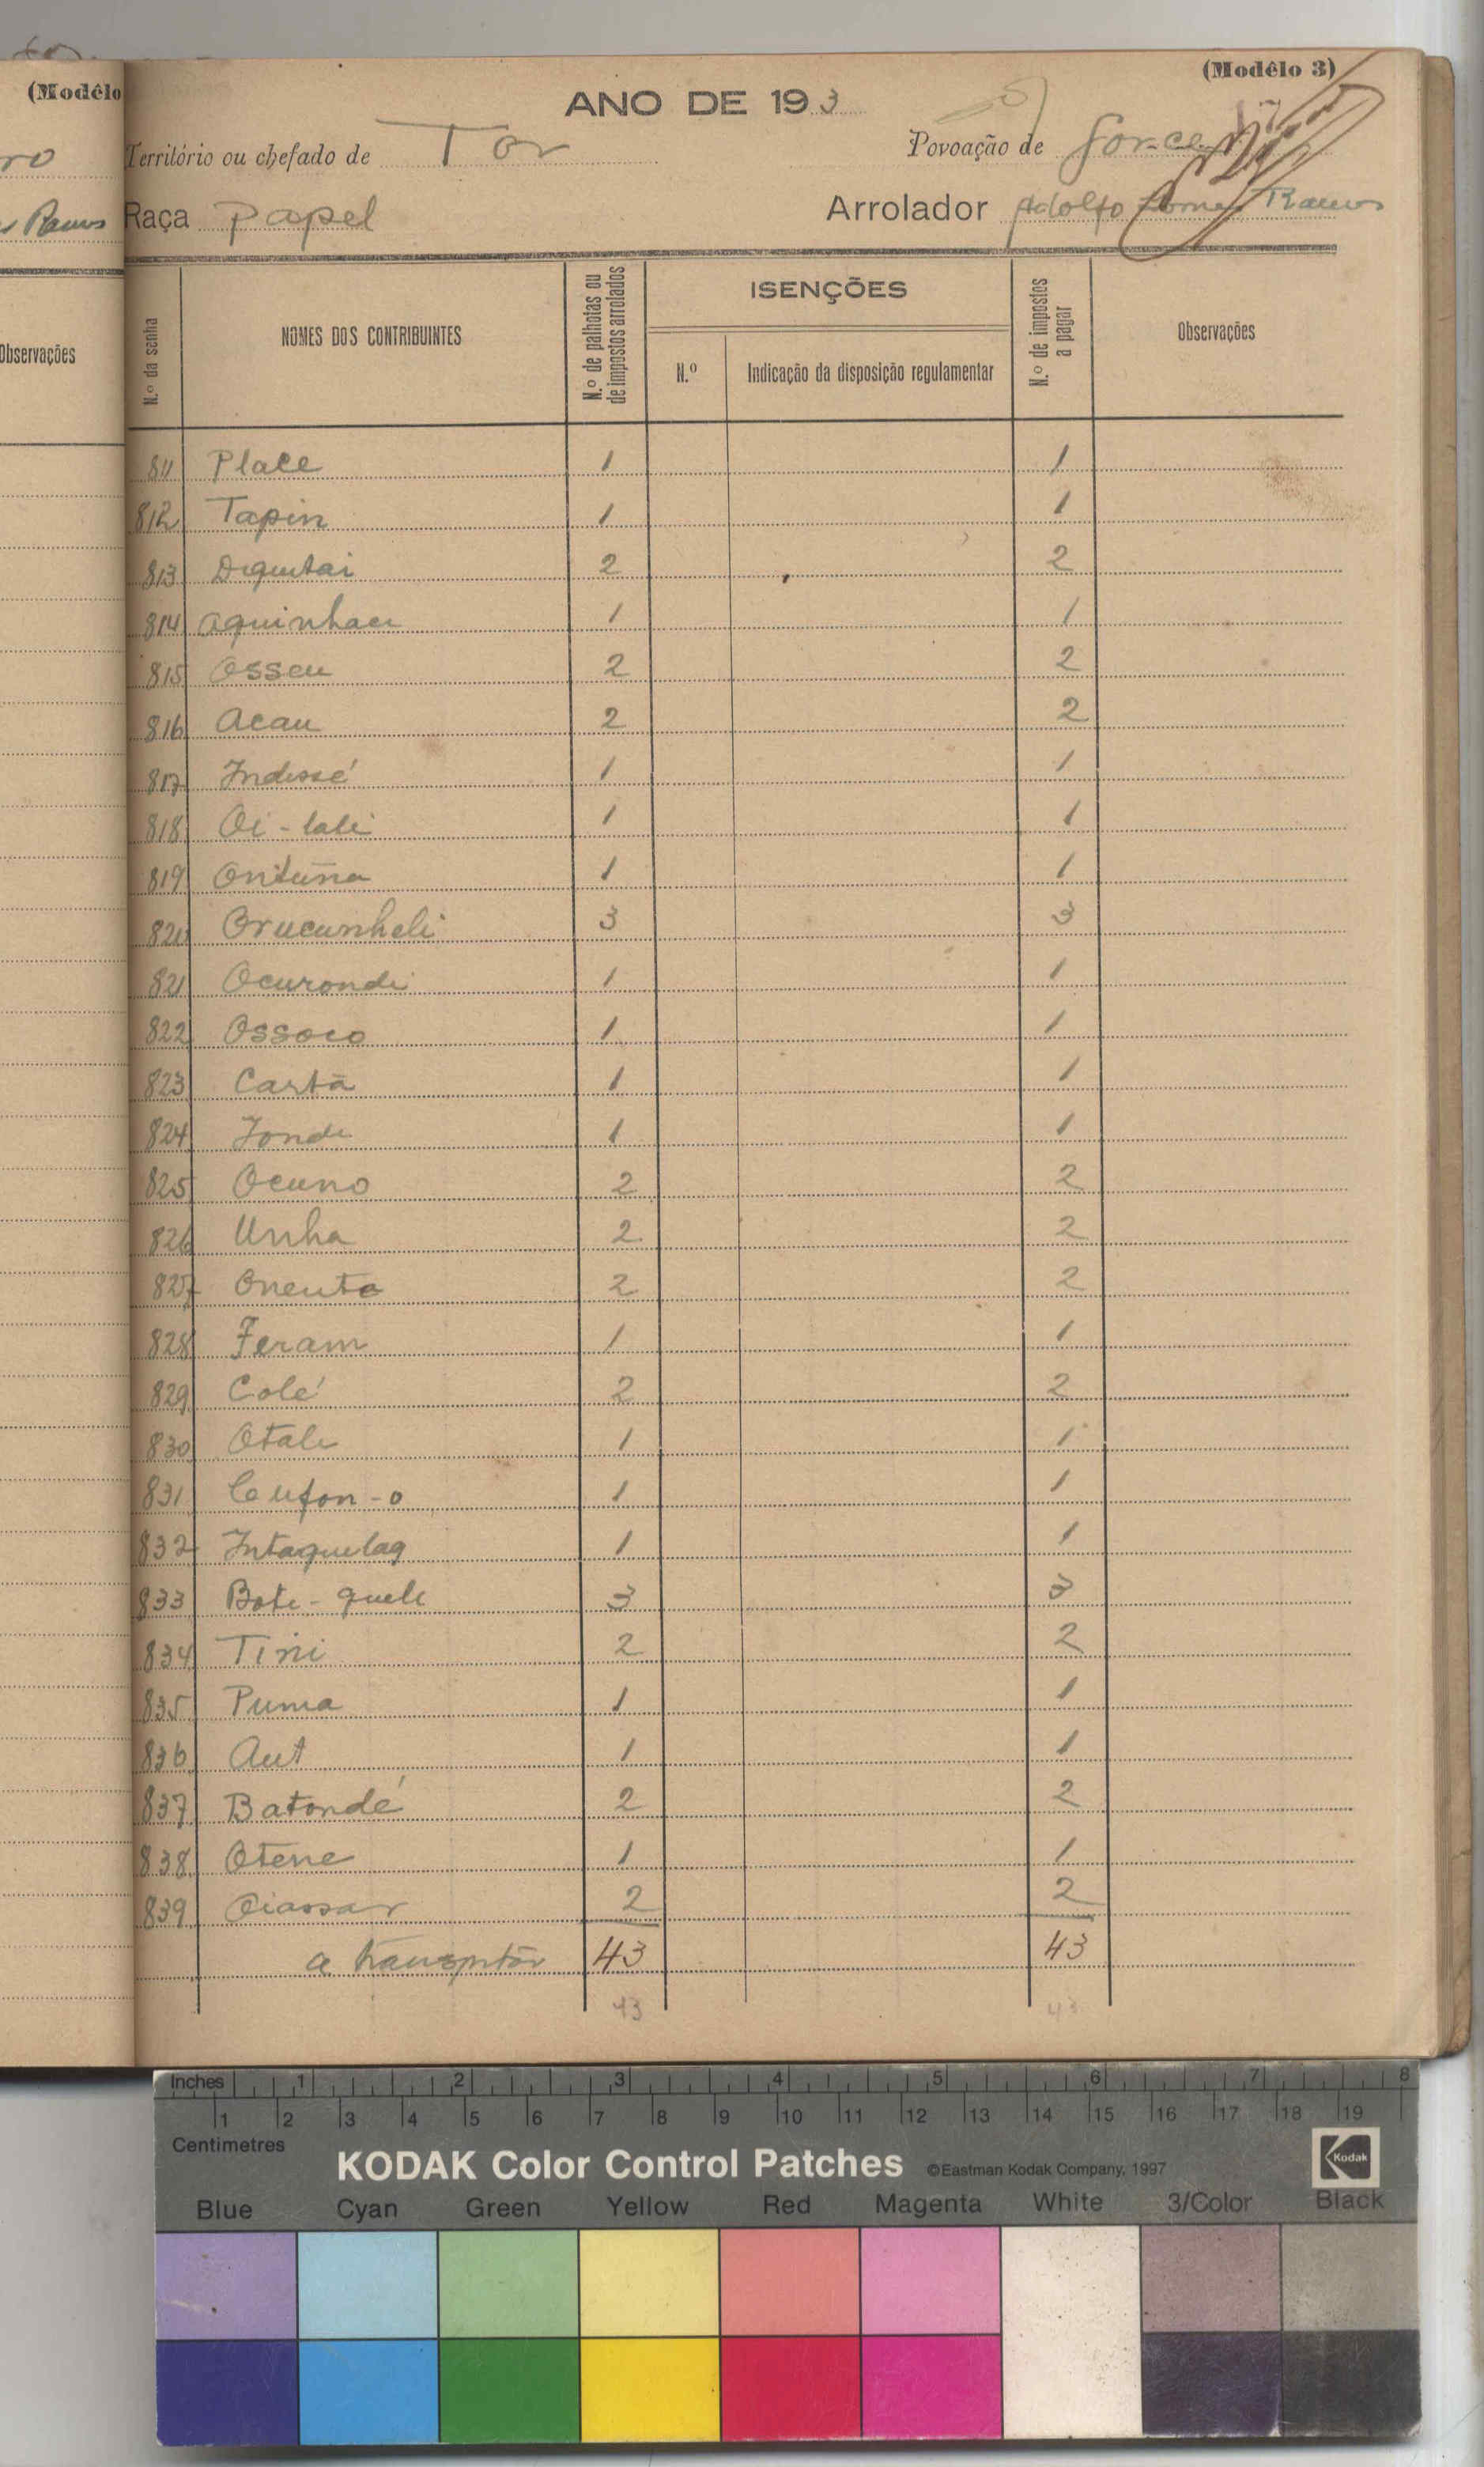 (Modêlo
ro
Ramos
Observações
(Modêlo 3)
ANO DE 193
Território ou chefado de Tor Povoação de
Raça Papel Arrolador Adolfo Gomes Ramos
N.º da senha NOMES DOS CONTRIBUINTES N.º de palhotas ou de impostos arrolados ISENÇÕES N.º de impostos a pagar Observações
N.º Indicação da disposição regulamentar
811 Place 1 1
812 Tapin 1 1
813 2 2
814 1 1
815 Osseu 2 2
816 Acau 2 2
817 Indissé 1 1
818 Oi-lali 1 1
819 Ontuna 1 1
820 Orucunheli 3 3
821 Ocurondi 1 1
822 Ossoco 1 1
823 Cartã 1 1
824 1 1
825 Ocuno 2 2
826 Unha 2 2
827 Oneuto 2 2
828 Feram 1 1
829 Colé 2 2
830 Otali 1 1
831 Cufon-o 1 1
832 Intaquelaq 1 1
833 Boti-quele 3 3
834 Tini 2 2
835 Puma 1 1
836 Aut 1 1
837 Batondé 2 2
838 Otene 1 1
839 Oiassar 2 2
a transportar 43 43
43 43
Inches 1 2 3 4 5 6 7 8
1 2 3 4 5 6 7 8 9 10 11 12 13 14 15 16 17 18 19
Centimetres
KODAK Color Control Patches ©Eastman Kodak Company, 1997 Kodak
Blue Cyan Green Yellow Red Magenta White 3/Color Black